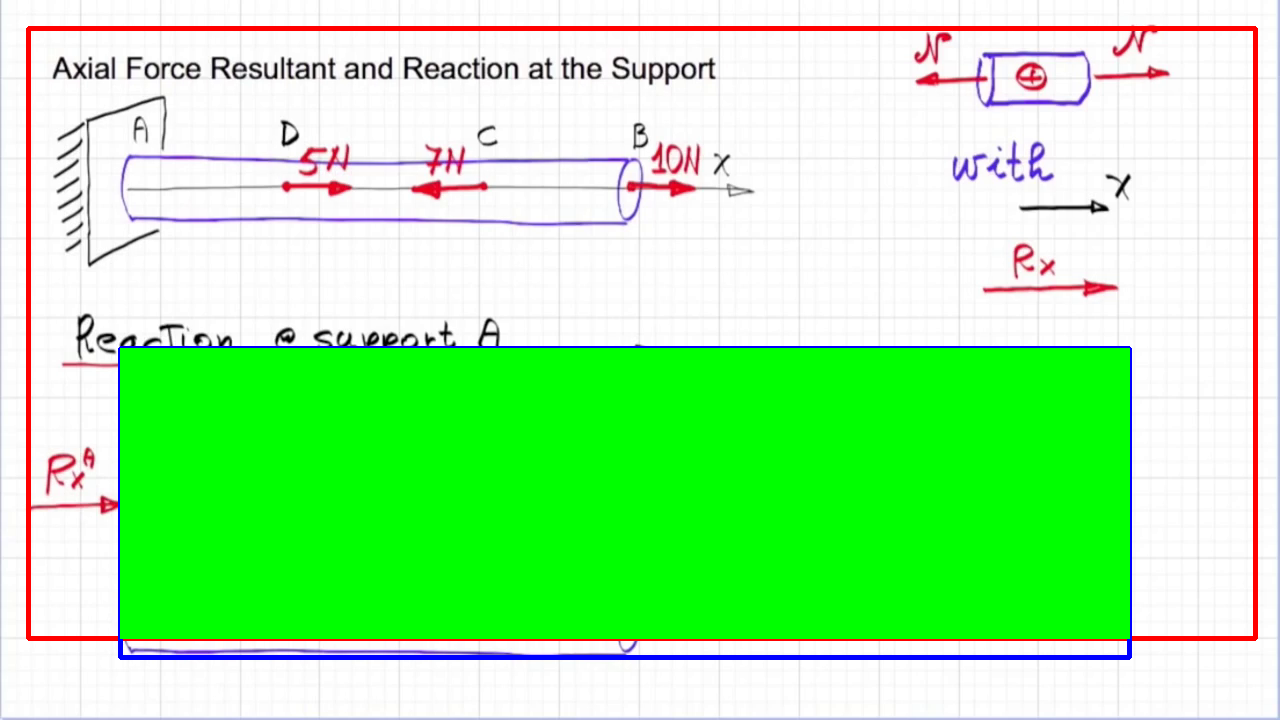 Axial Force Resultant and Reaction at the Support
N N
A D 5N 7N C B 10N X
with
X
Rx
Reaction @ support A
Rx^A